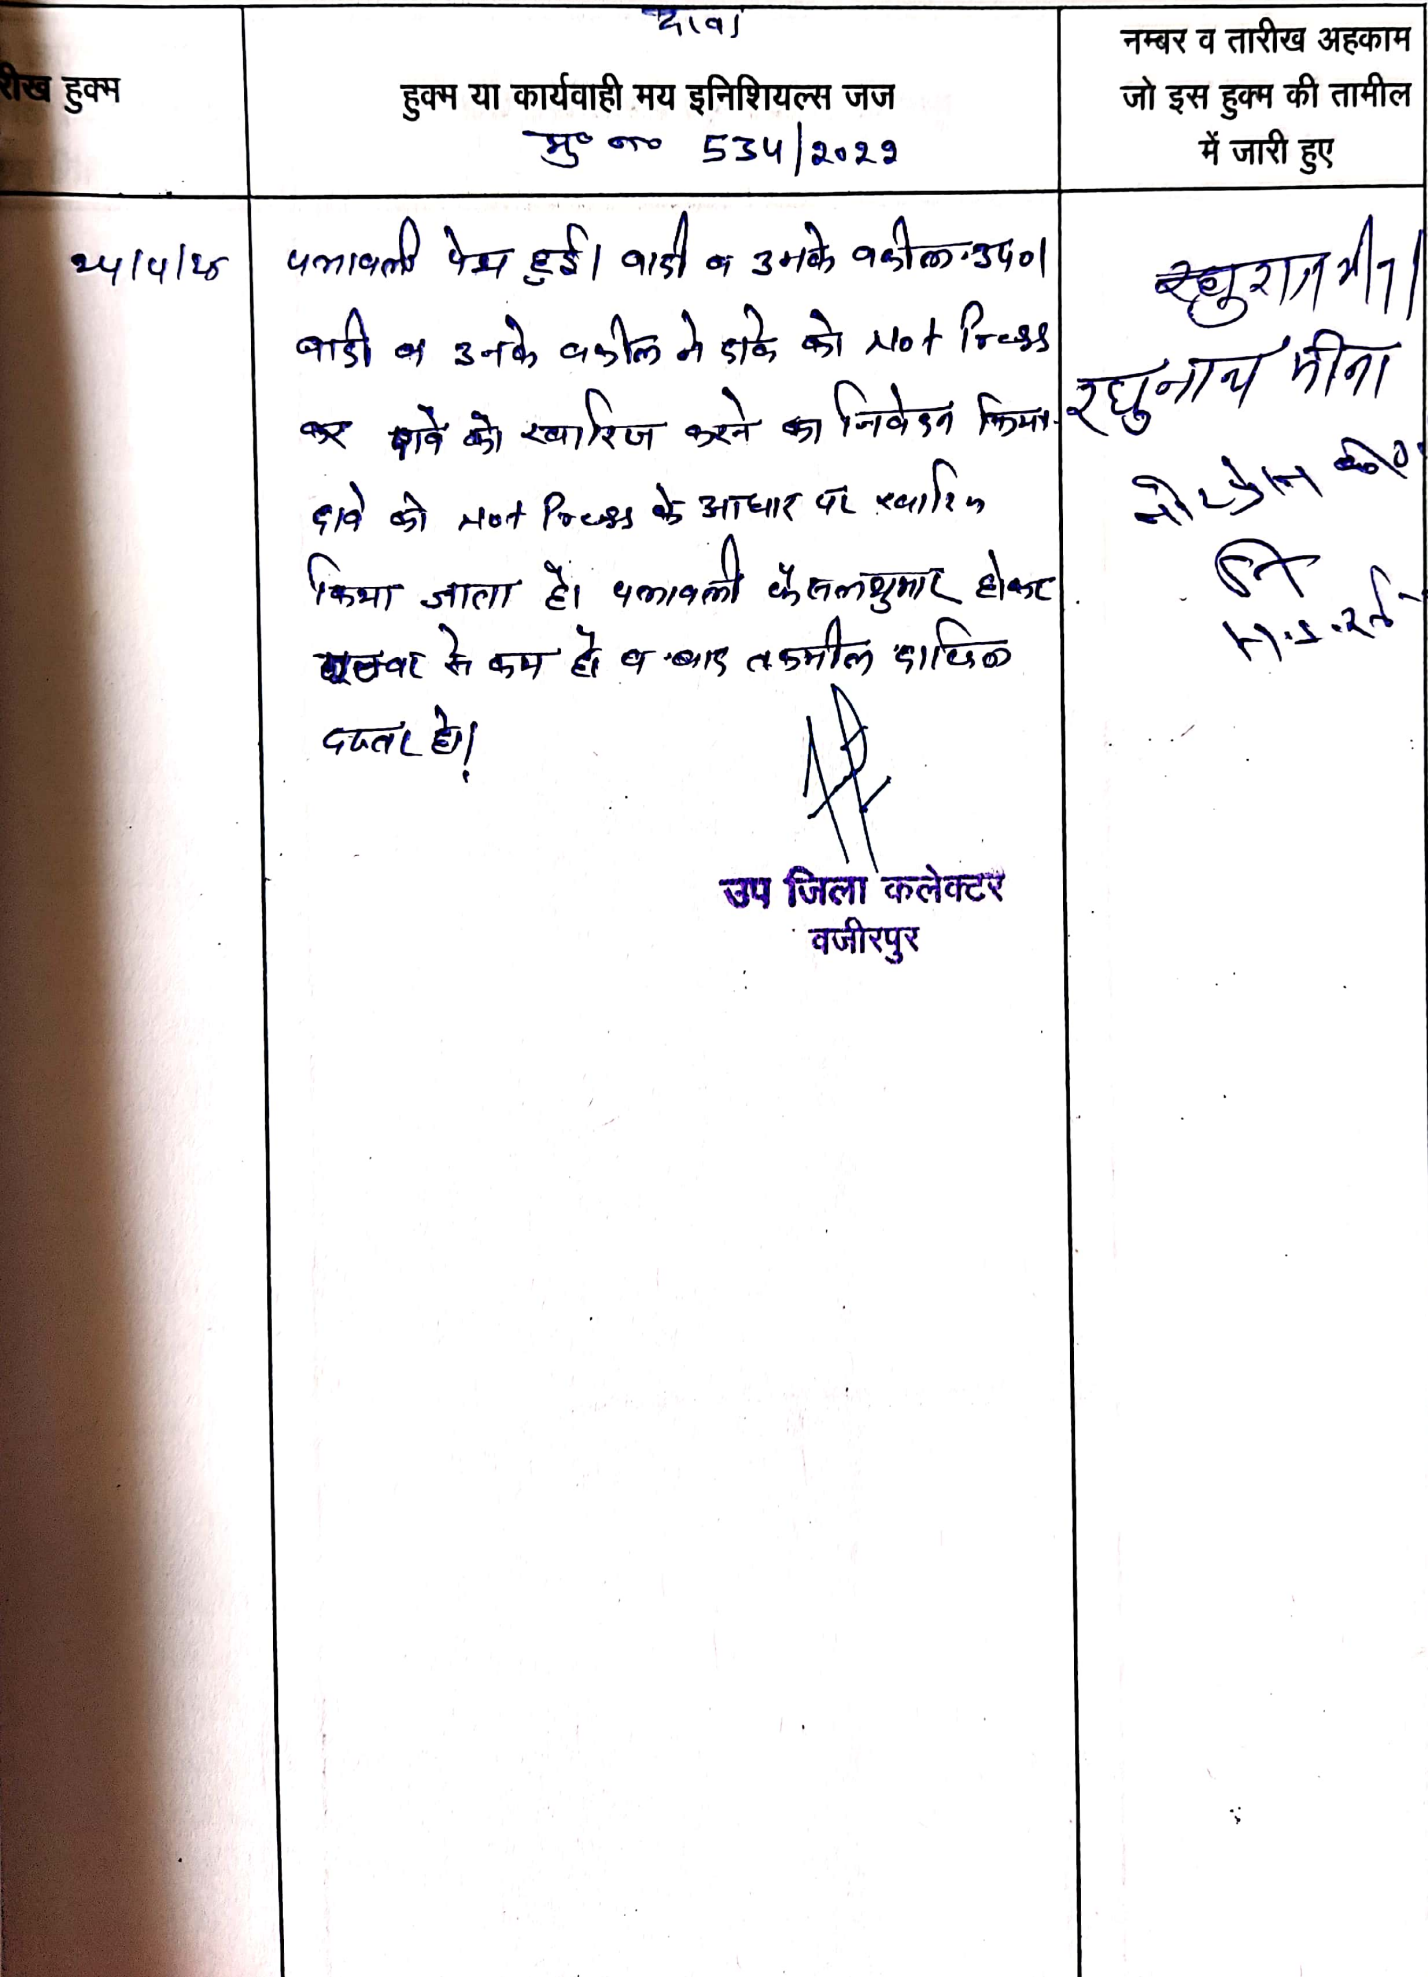 दावा
रीख हुक्म
हुक्म या कार्यवाही मय इनिशियल्स जज
मु० न० 534/2022
नम्बर व तारीख अहकाम
जो इस हुक्म की तामील
में जारी हुए
पत्रावली पेश हुई। वादी व उनके वकील उप०।
वादी व उनके वकील ने दावे को Not Press
कर दावे को खारिज करने का निवेदन किया
दावे को Not Press के आधार पर खारिज
किया जाता है। पत्रावली फैसलशुमार होकर
नम्बर से कम हो व बाद तकमील दाखिल
दफ्तर हो।
उप जिला कलेक्टर
वजीरपुर
रघुनाथ मीना